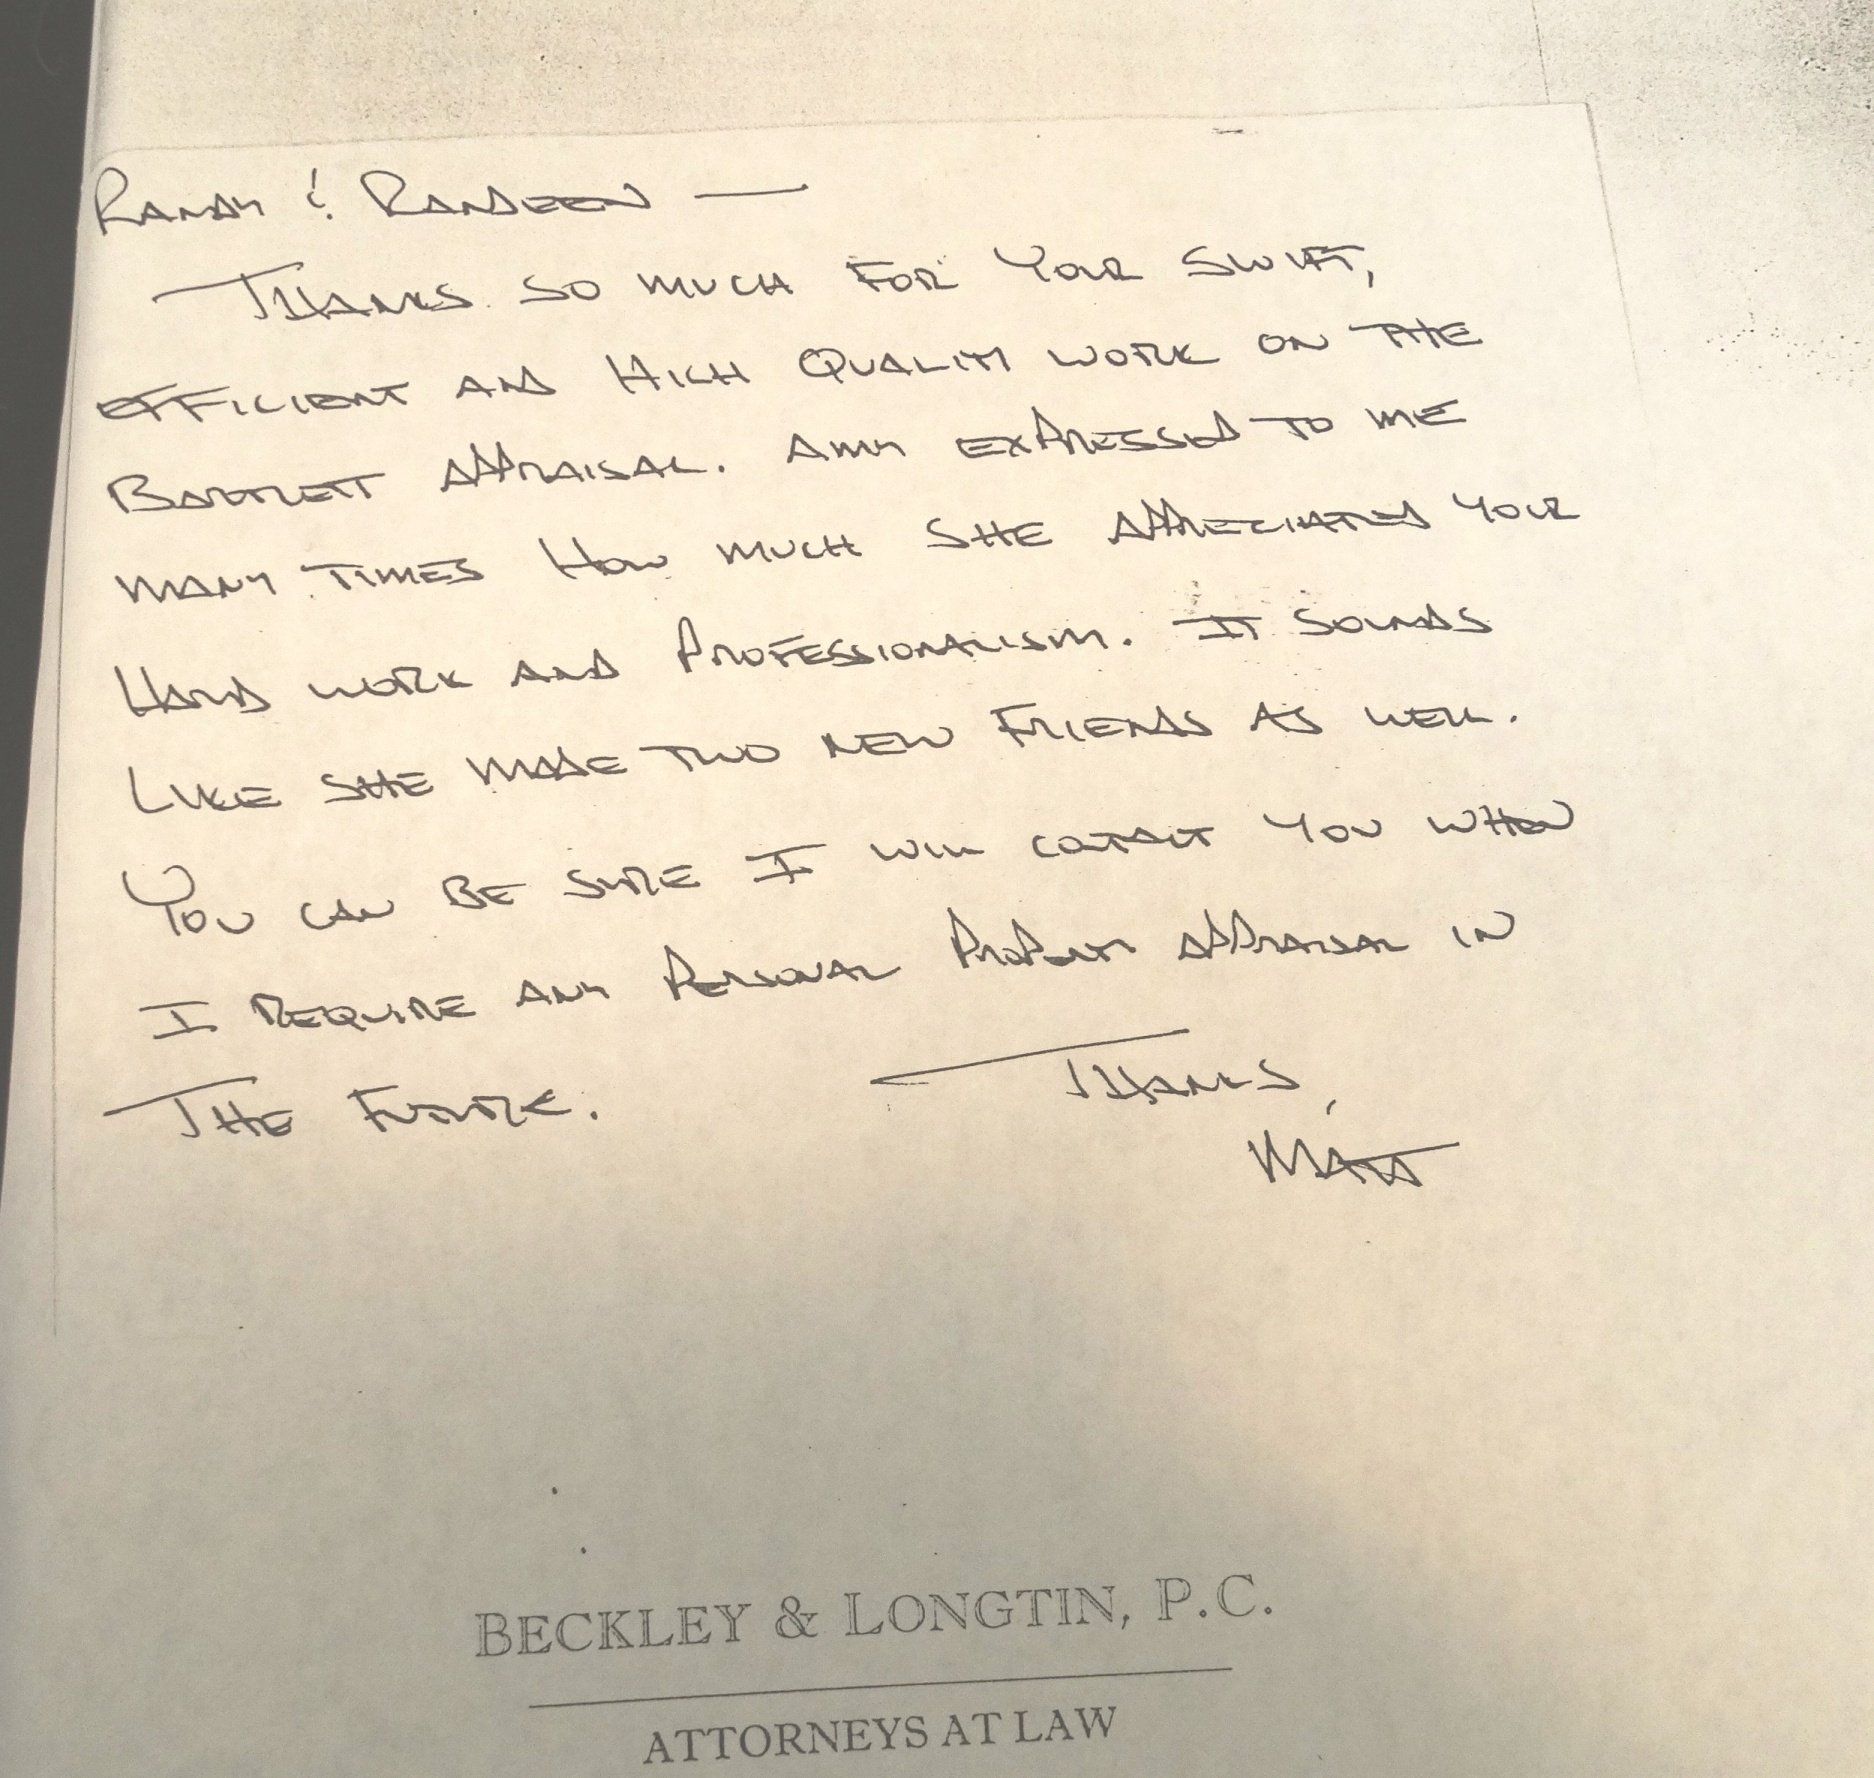 RANDY & RANDEEN —
THANKS SO MUCH FOR YOUR SWIFT,
EFFICIENT AND HIGH QUALITY WORK ON THE
BARTLETT APPRAISAL. AMY EXPRESSED TO ME
MANY TIMES HOW MUCH SHE APPRECIATED YOUR
HARD WORK AND PROFESSIONALISM. IT SOUNDS
LIKE SHE MADE TWO NEW FRIENDS AS WELL.
YOU CAN BE SURE I WILL CONTACT YOU WHEN
I REQUIRE ANY PERSONAL PROPERTY APPRAISAL IN
THE FUTURE.
THANKS,
MATT
BECKLEY & LONGTIN, P.C.
ATTORNEYS AT LAW